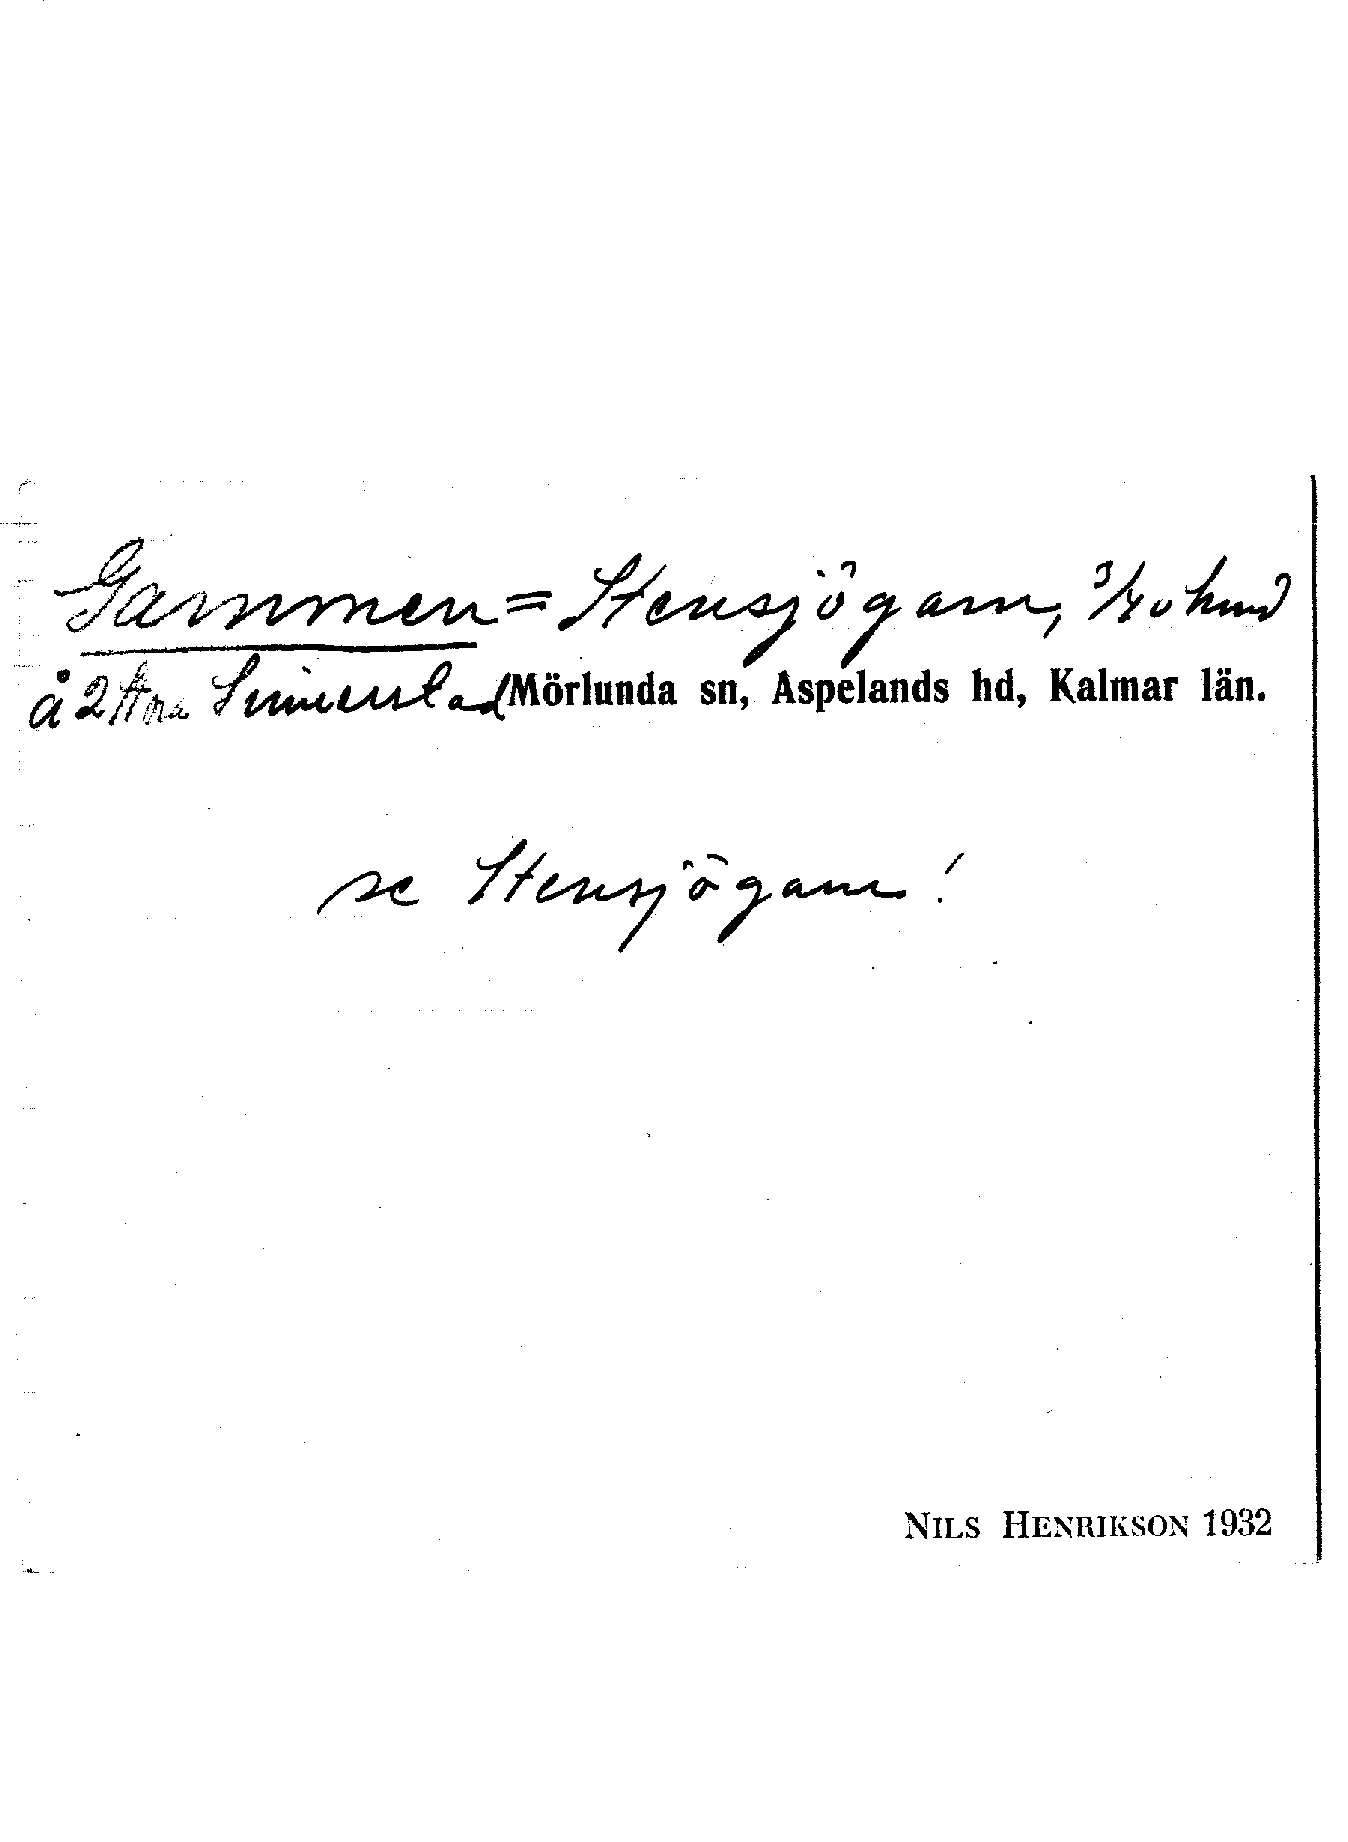 Gammen = Stensjögam,
å 2 Stra Simmerstad Mörlunda sn, Aspelands hd, Kalmar län.
se Stensjögam!
NILS HENRIKSON 1932